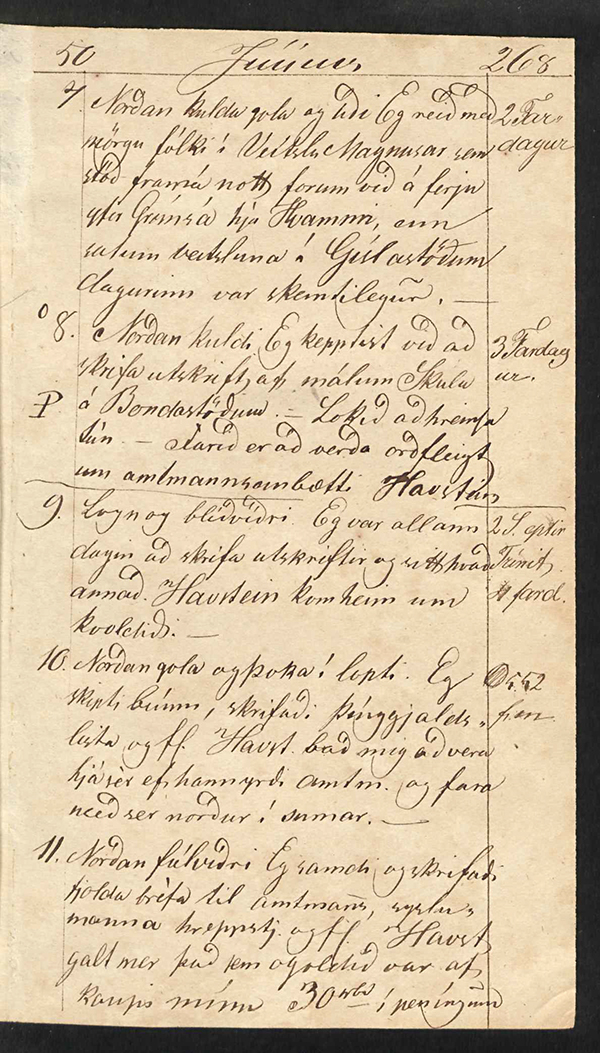 50 Júníus 268
7. Norðan kulda gola og úði Eg reið með 2 Far-
mörgu fólki í Veitslu Magnusar sem dagur
stóð framá nótt forum við á ferju
yfir Grímsá hjá Hvammi, enn
satum veitsluna á Gíslastöðum
dagurinn var skemtilegur. —
8. Norðan kuldi Eg kepptist við að 3 Fardag
skrifa utskrift af málum Skúla ur.
á Bondastöðum. — Lokið að hreinsa
tún. — Farið er að verða orðfleigt
um amtmannsembætti Havsteins
9. Logn og blíðviðri. Eg var allann 2 S. eptir
dagin að skrifa utskriftir og sitt hvað Trinit.
annað. Havstein kom heim um 4 fard.
kvoldið. —
10. Norðan gola og þoka í lopti. Eg 5.52
skipti búinu, skrifaði þinggjalds- fm
lista og fl. Havst. bað mig að vera
hjá sèr ef hann yrði amtm. og fara
með ser norður í sumar. —
11. Norðan fúlviðri Eg samdi og skrifaði
fjolda bréfa til amtmanns, syslu-
manna hreppstj. og fl. Havst
galt mer það sem ogoldið var af
kaupi mínu 30 rbd í peníngum